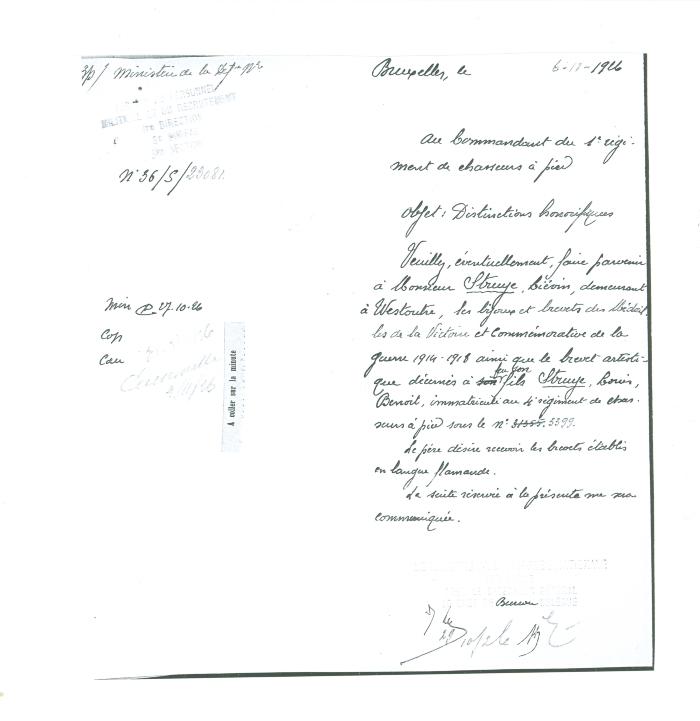 Ministère de la Déf
Bruxelles, le 6-11-1926
DU RECRUTEMENT
DIRECTION
N° 36/5/23081.
Au Commandant du 1e régi-
ment de chasseurs à pied
Objet: Distinctions honorifiques
Veuillez, éventuellement, faire parvenir
à Monsieur Struye, Liévin, demeurant
à Westoutre, les bijoux et brevets des Médail-
les de la Victoire et Commémorative de la
guerre 1914-1918 ainsi que le brevet artisti-
que décernés à son feu son fils Struye, Louis,
Benoit, immatriculé au 4e régiment de chas-
seurs à pied sous le n° 3399.
Le père désire recevoir les brevets établis
en langue flamande.
La suite réservée à la présente me sera
communiquée.
Min 27-10-26
Cop
Cau
A coller sur la minute